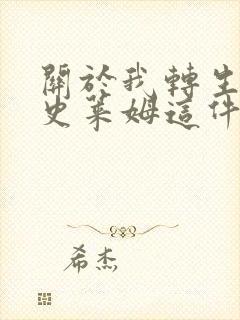 關於我轉生
史萊姆這件
希杰